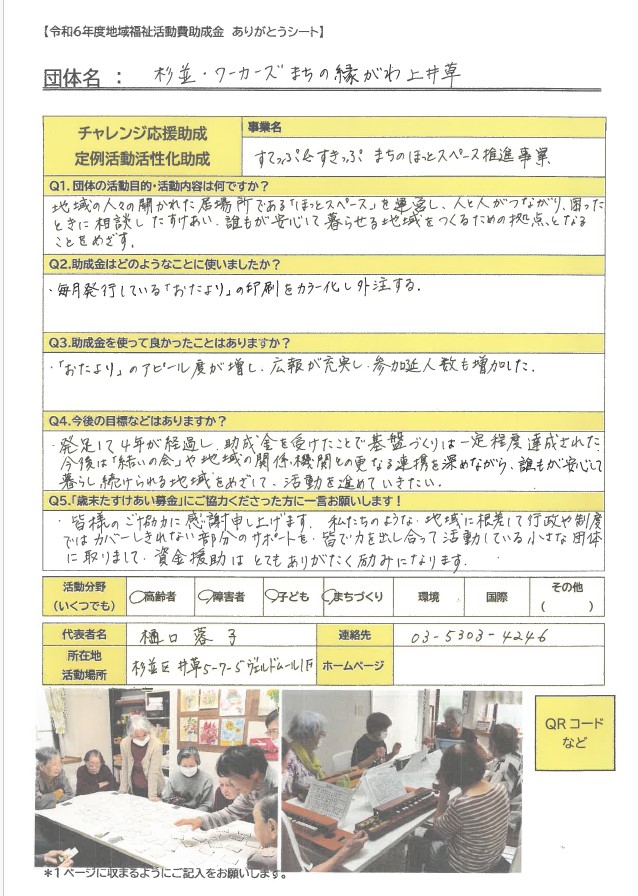 【令和6年度地域福祉活動費助成金 ありがとうシート】
団体名 : 杉並・ワーカーズまちの縁がわ上井草
チャレンジ応援助成
定例活動活性化助成
事業名
すてっぷ&すきっぷ まちのほっとスペース推進事業
Q1.団体の活動目的・活動内容は何ですか?
地域の人々の開かれた居場所である「ほっとスペース」を運営し、人と人がつながり、困った
ときに相談したすけあい、誰もが安心して暮らせる地域をつくるための拠点となる
ことをめざす。
Q2.助成金はどのようなことに使いましたか?
・毎月発行している「おたより」の印刷をカラー化し外注する.
Q3.助成金を使って良かったことはありますか?
・「おたより」のアピール度が増し、広報が充実し、参加延人数も増加した.
Q4.今後の目標などはありますか?
・発足して4年が経過し、助成金を受けたことで基盤づくりは一定程度達成された.
今後は「結いの会」や地域の関係機関との更なる連携を深めながら、誰もが安心して
暮らし続けられる地域をめざして、活動を進めていきたい.
Q5.「歳末たすけあい募金」にご協力くださった方に一言お願いします!
・皆様のご協力に感謝申し上げます. 私たちのような、地域に根差して行政や制度
ではカバーしきれない部分のサポートを、皆で力を出し合って活動している小さな団体
に取りまして、資金援助はとてもありがたく励みになります.
活動分野
(いくつでも)
高齢者
障害者
子ども
まちづくり
環境
国際
その他
( )
代表者名
樋口 蓉子
連絡先
03-5303-4246
所在地
活動場所
杉並区 井草5-7-5ヴェルドムール1F
ホームページ
QRコード
など
*1ページに収まるようにご記入をお願いします。